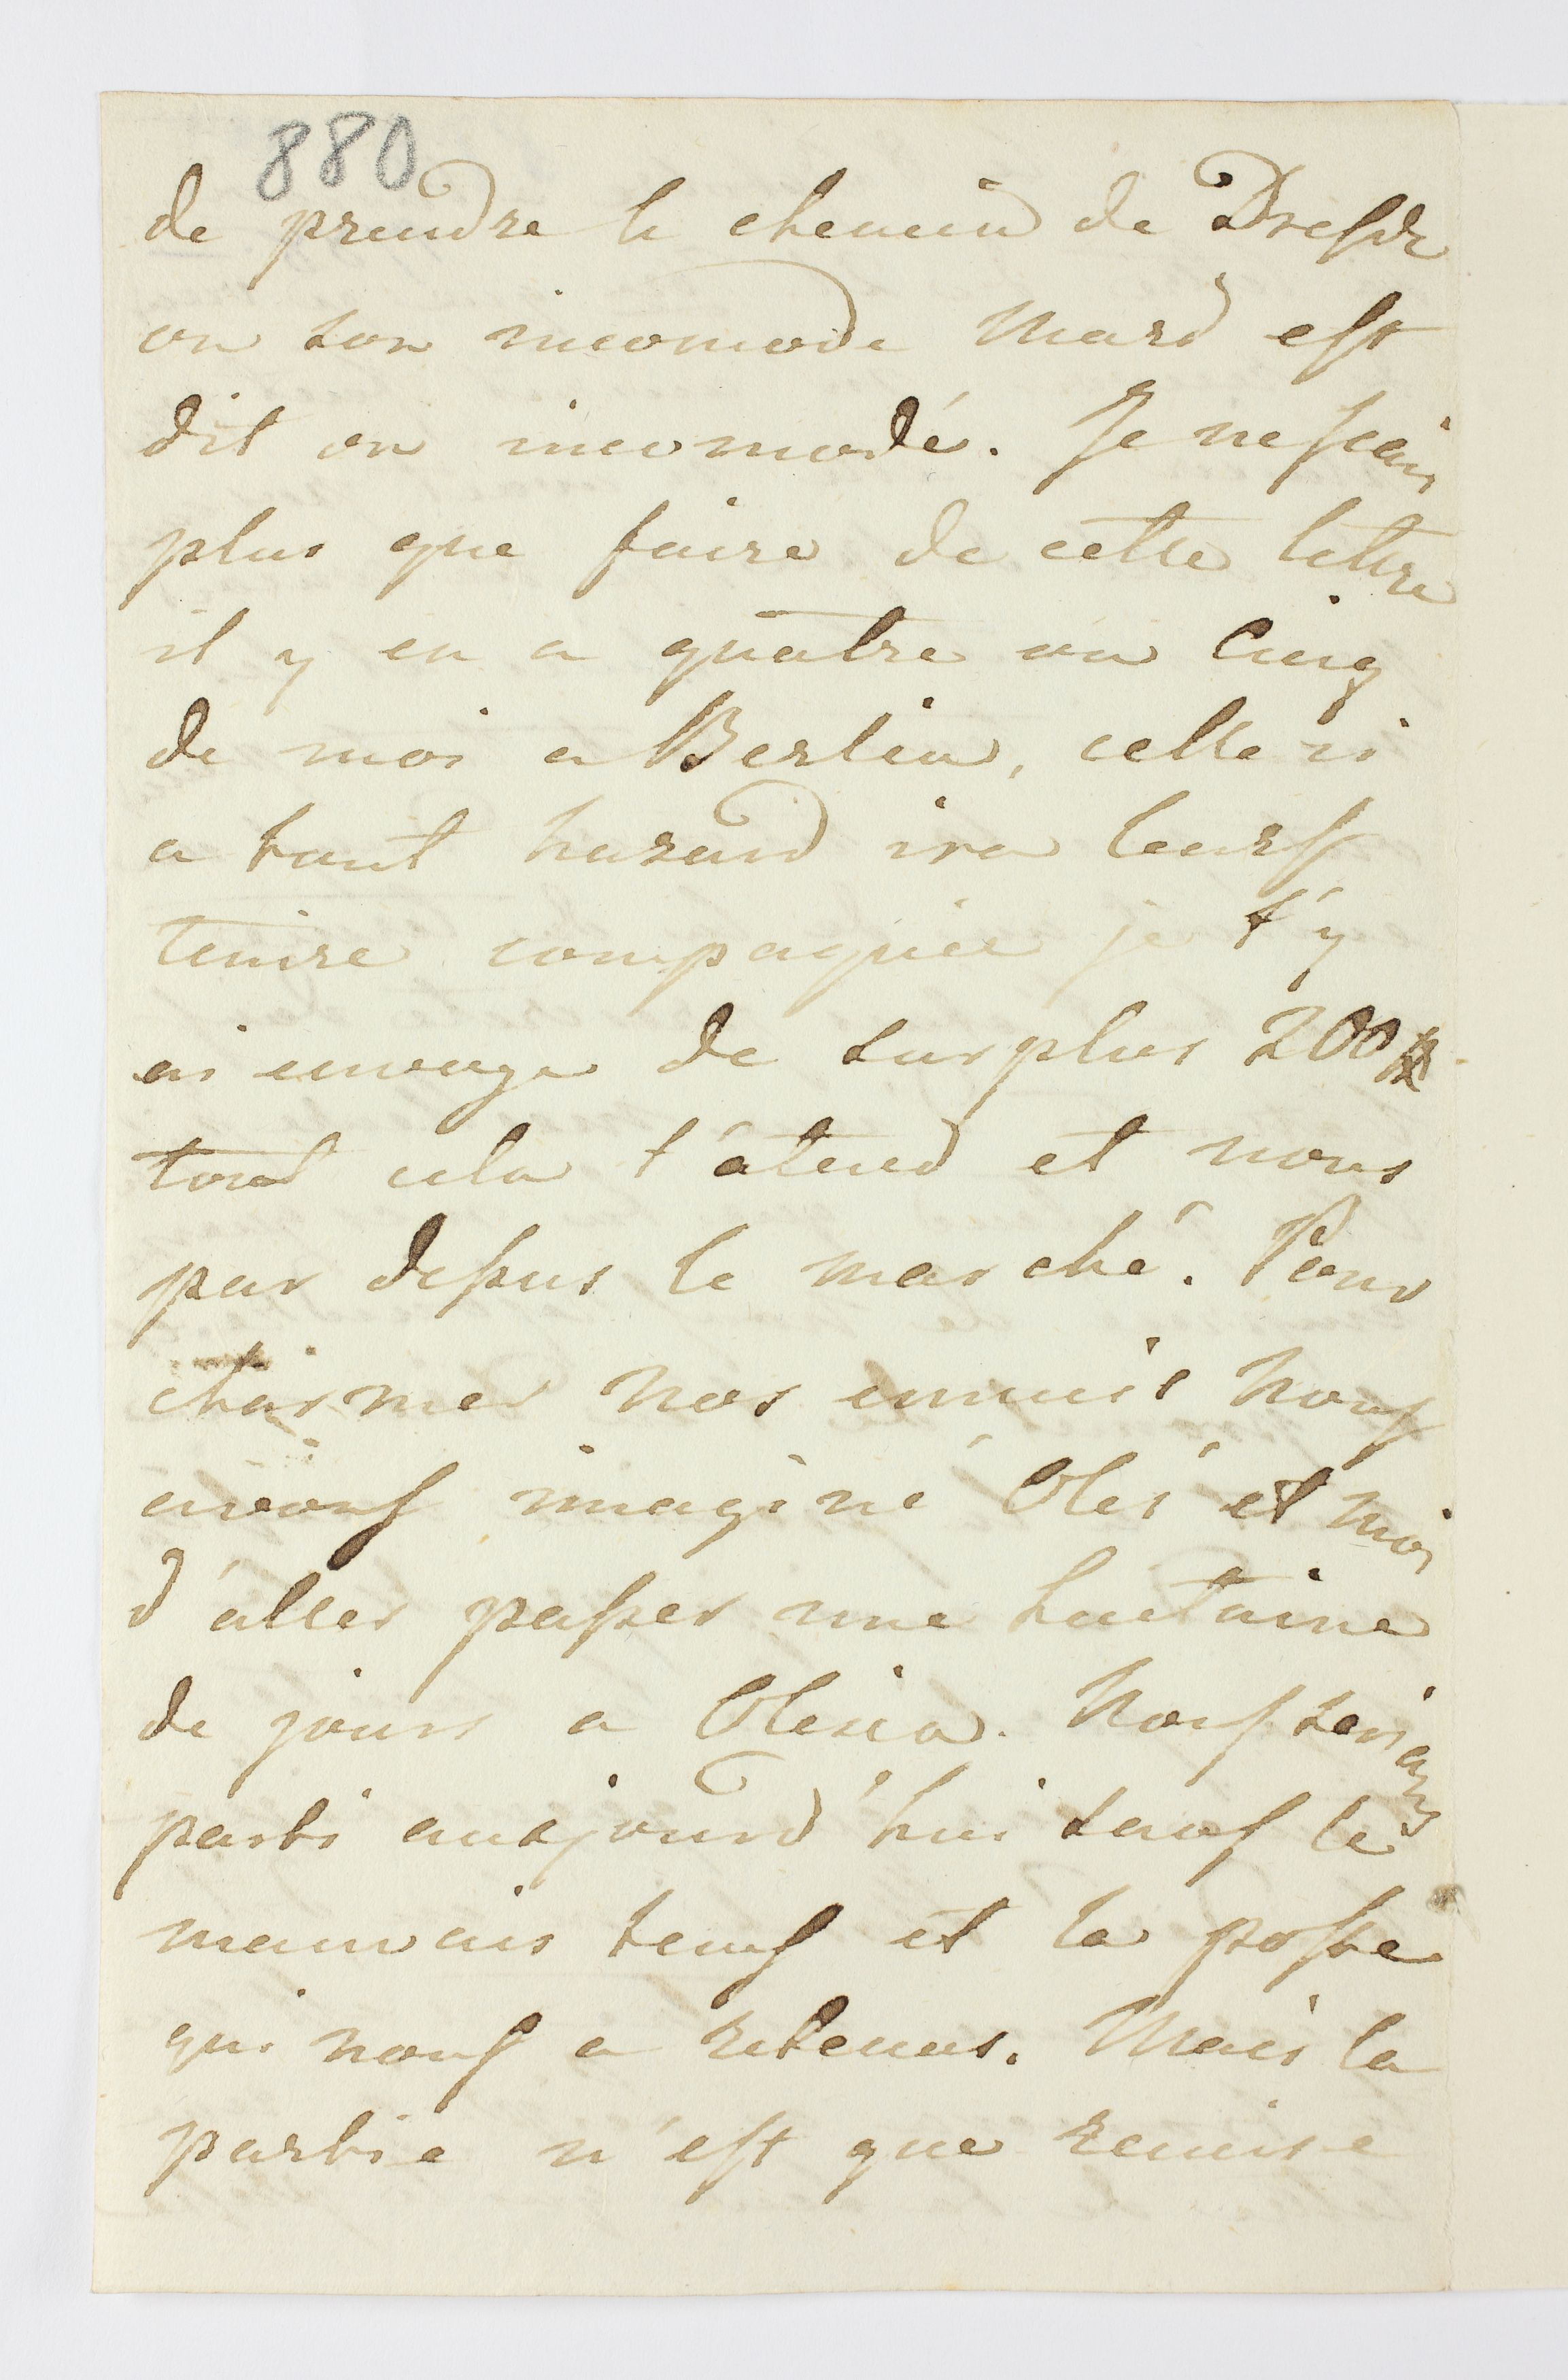 880
de prendre le chemin de Dresde
ou son incomode Mard est
dit on incomodé. Je ne scais
plus que faire de cette lettre
il y en a quatre ou Cinq
de moi a Berlin, celle ci
a tout hazard ira leurs
tenire compagnie je t'y
ai envoye de surplus 200
tout cela t'atend et nous
par dessus le marché. Pour
charmer nos ennuis nous
avons imaginé Olés et moi
d'aller passer une huitaine
de jours a Olesia. Nous serians
parti aujourd'hui sauf le
mauvais tems et la poste
qui nous a retenus. Mais la
partie n'est que remise